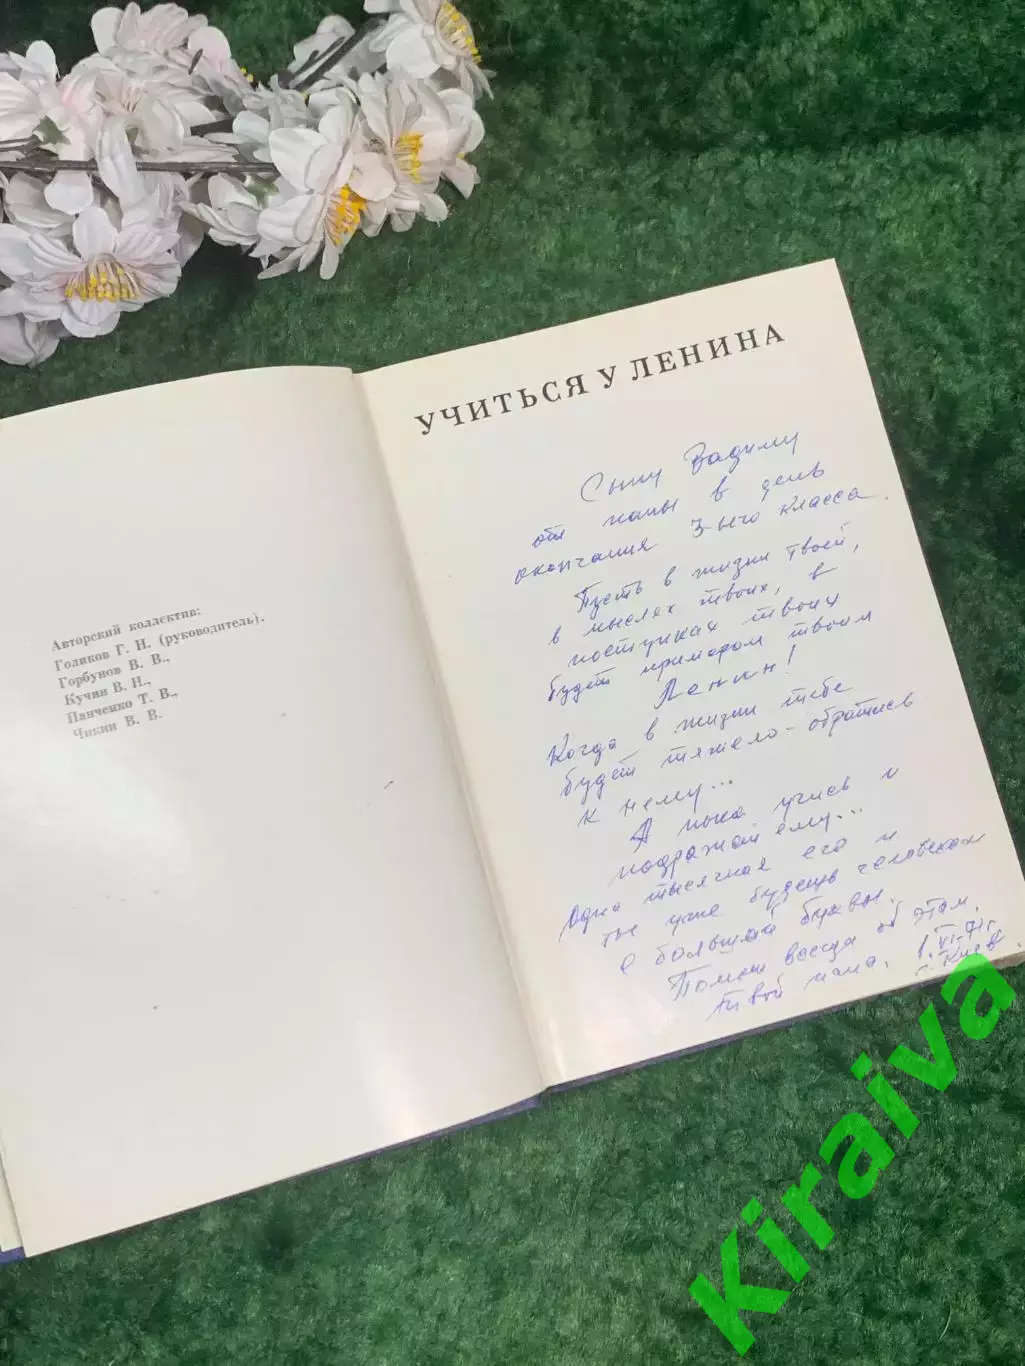 УЧИТЬСЯ У ЛЕНИНА
Сыну Вадиму
от мамы в день
окончания 3-его класса.
Пусть в жизни твоей,
в мыслях твоих, в
поступках твоих
будет примером твоим
Ленин!
Когда в жизни тебе
будет тяжело - обратись
к нему...
А пока учись и
подражай ему...
Одна тысячная его и
ты уже будешь человеком
с большой буквы.
Помни всегда об этом.
Твой мама. 1.VI-71г.
г. Киев.
Авторский коллектив:
Голиков Г. Н. (руководитель).
Горбунов В. В.,
Кучин В. Н.,
Панченко Т. В.,
Чикин В. В.
Kiraiva